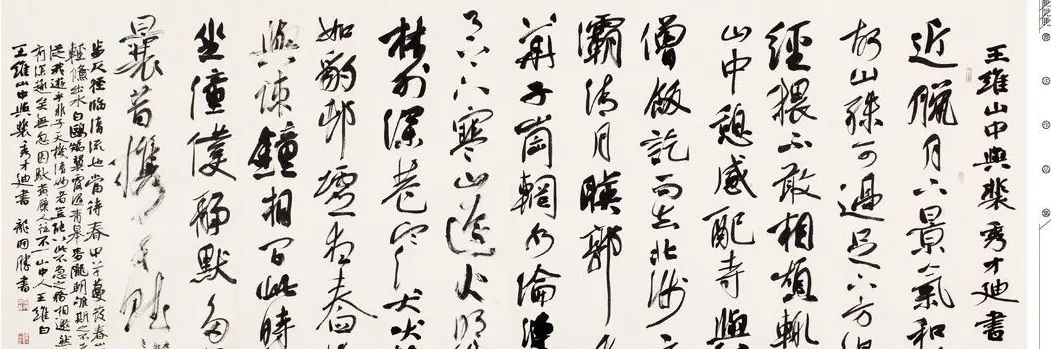 王維山中與裴秀才迪書
近臘月下景氣和
故山殊可過足下方温
經猥不敢相煩輒
山中憩感配寺與
僧飯訖而去北涉玄
灞清月暎郭
華子岡輞水淪漣
下寒山遠火明
林外深巷寒犬吠
如豹邨墟夜舂
與疎鐘相間此時
坐僮僕靜默多
曩昔攜手賦
步仄徑臨清流也當待春中草木蔓發春山
輕鯈出水白鷗矯翼露濕青皋麥隴朝雊斯之不
從我遊乎非子天機清妙者豈能以此不急之務相邀然
有深趣矣無忽因馱黃檗人往不一山中人王維白
王維山中與裴秀才迪書 龍開勝書